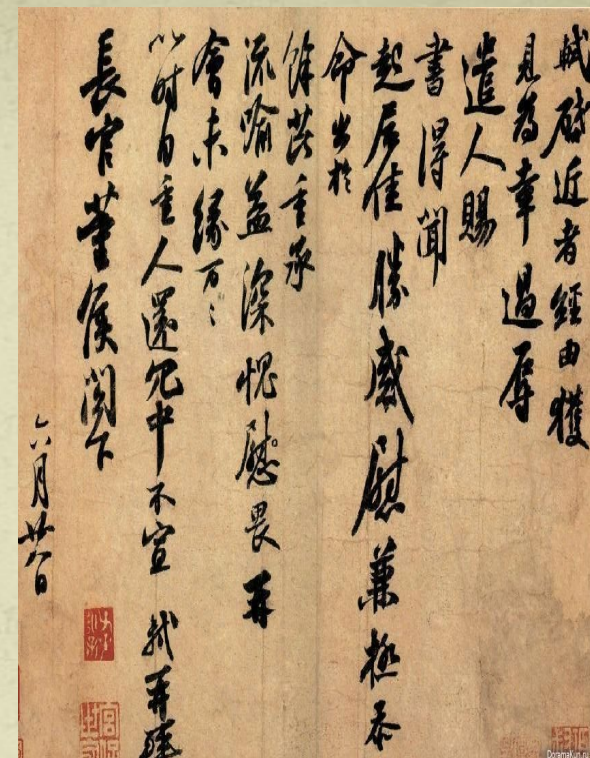 軾啓近者經由獲
見為幸過辱
遣人賜
書得聞
起居佳勝感慰兼極忝
命出於
餘芘重承
流喻益深愧慰畏再
會未緣万〻
以时自重人還冗中不宣 軾再拜
長官董侯閤下
六月廿八日
Doramakun.ru